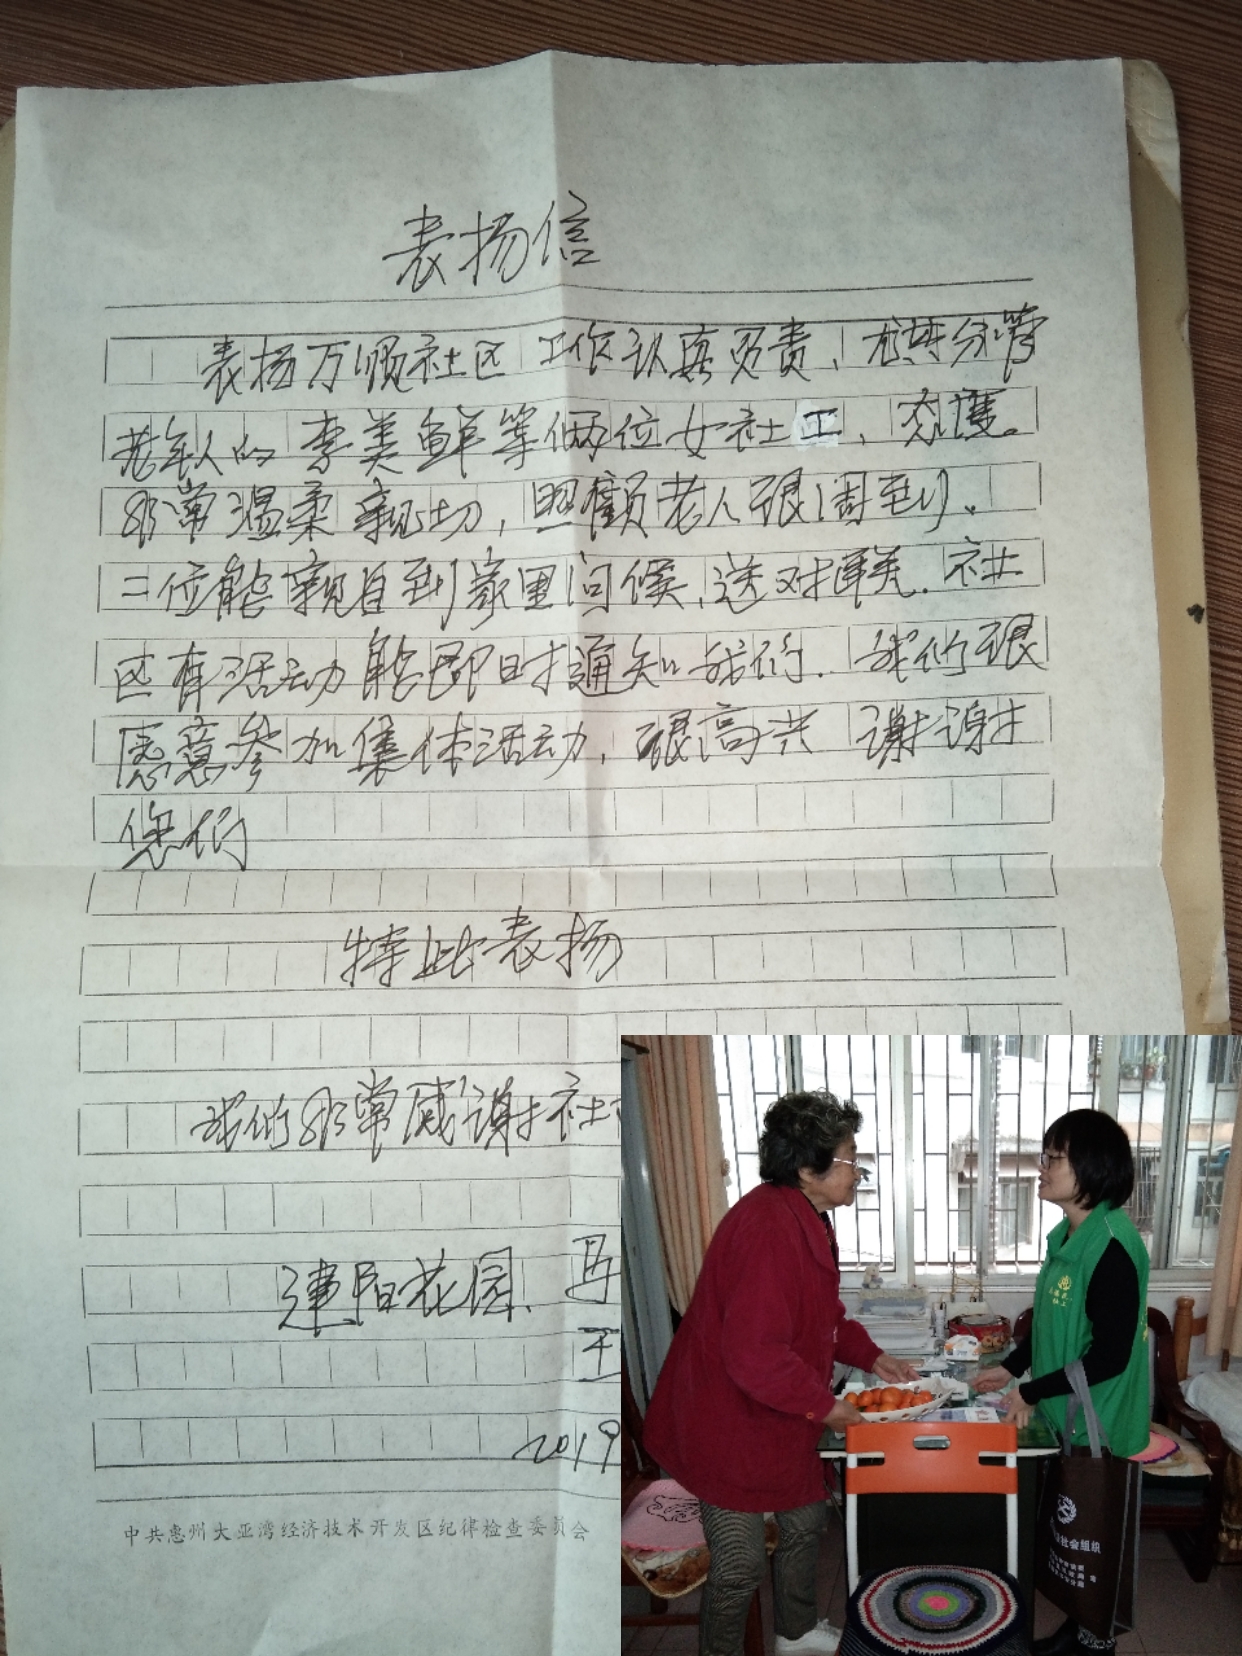 表扬信
表扬万顺社区工作认真负责、尤其分管
老年人的李美鲜等俩位女社工、态度。
非常温柔亲切，照顾老人很周到。
二位能亲自到家里问候、送对联．社
区有活动能即时通知我们．我们很
愿意参加集体活动，很高兴 谢谢
您们
特此表扬
我们非常感谢社
建阳花园．马
王
2019
中共惠州大亚湾经济技术开发区纪律检查委员会
社会组织